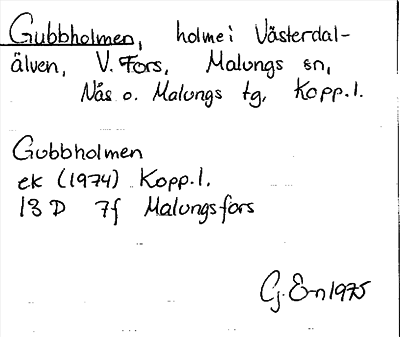 Gubbholmen, holme i Västerdal-
älven, V. Fors, Malungs sn,
Nås o. Malungs tg, Kopp.l.
Gubbholmen
ek (1974) Kopp.l.
13 D 7f Malungsfors
G. E-n 1975